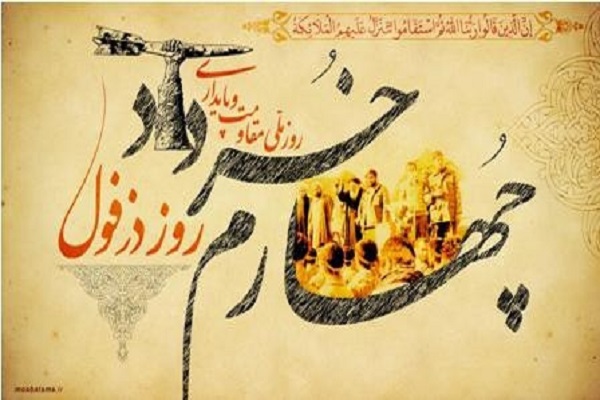 إنَّ الَّذِينَ قَالُوا رَبُّنَا اللهُ ثُمَّ اسْتَقَامُوا تَتَنَزَّلُ عَلَيْهِمُ الْمَلَائِكَةُ
چهارم خرداد
روز ملی مقاومت و پایداری
روز دزفول